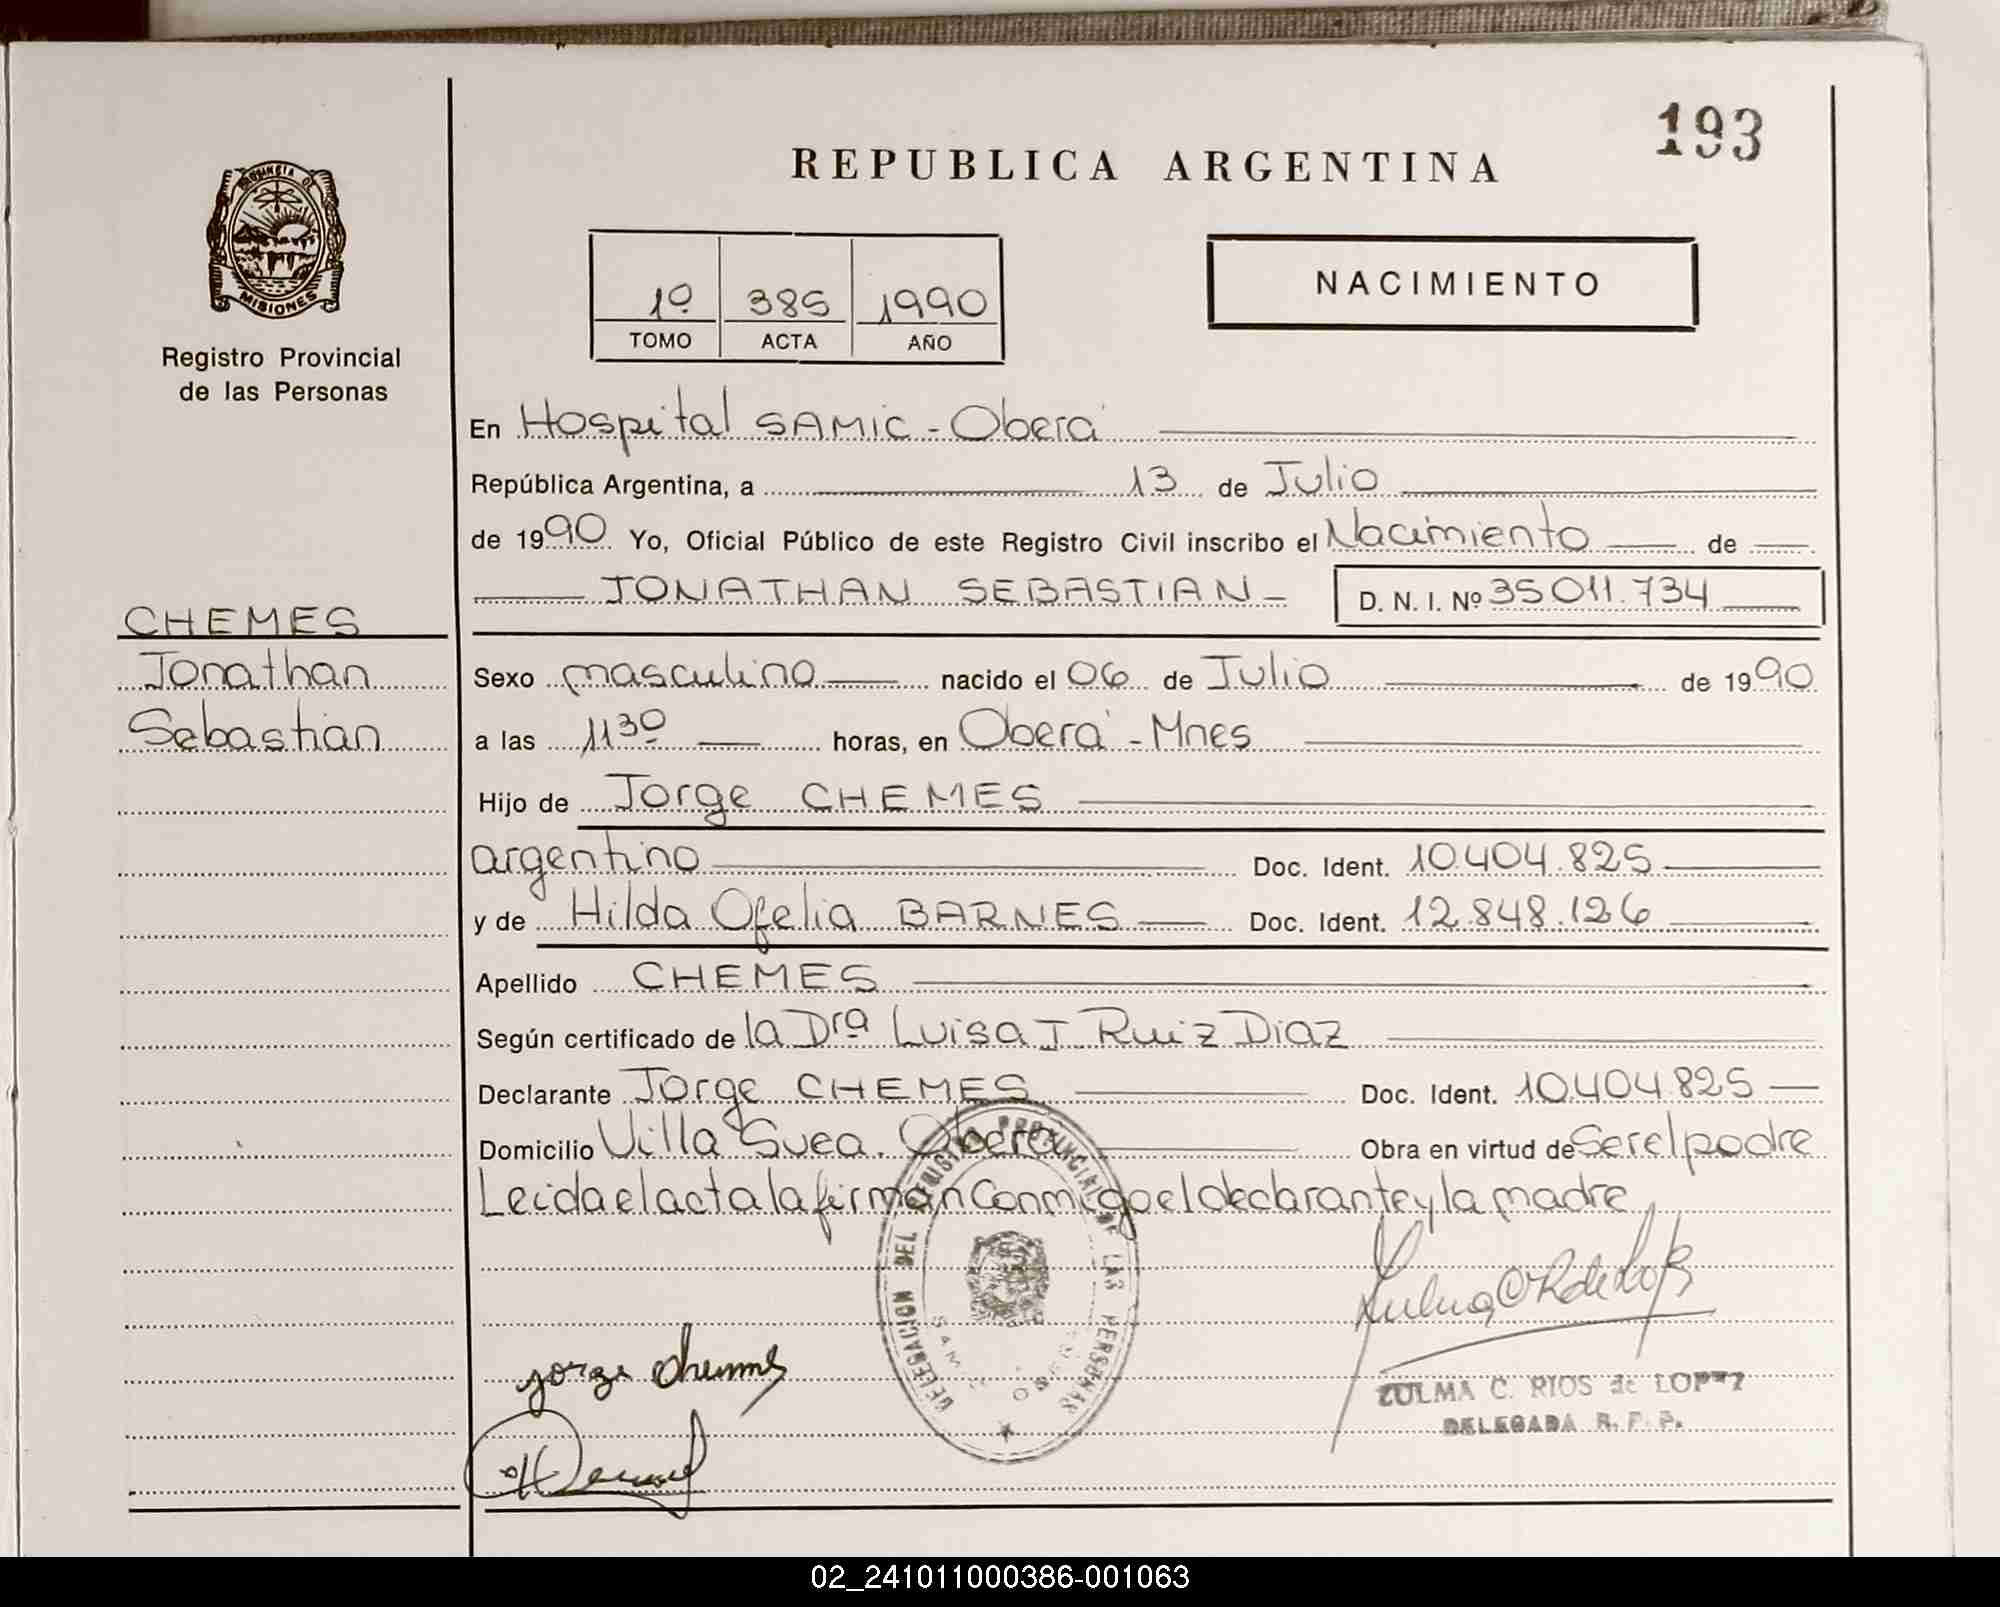 193
REPUBLICA ARGENTINA
PROVINCIA DE
MISIONES
Registro Provincial
de las Personas
1º 385 1990
TOMO ACTA AÑO
NACIMIENTO
En Hospital SAMIC - Oberá
República Argentina, a 13 de Julio
de 1990 Yo, Oficial Público de este Registro Civil inscribo el Nacimiento de
JONATHAN SEBASTIAN - D. N. I. Nº 35011.734
CHEMES
Jonathan
Sebastián
Sexo masculino nacido el 06 de Julio de 1990
a las 11 30 horas, en Oberá - Mnes
Hijo de Jorge CHEMES
argentino Doc. Ident. 10.404.825
y de Hilda Ofelia BARNES Doc. Ident. 12.848.126
Apellido CHEMES
Según certificado de la Dra Luisa J. Ruiz Diaz
Declarante Jorge CHEMES Doc. Ident. 10.404.825
Domicilio Villa Svea. Oberá Obra en virtud de Ser el padre
Leida el acta la firman conmigo el declarante y la madre
DELEGACION DEL REGISTRO PROVINCIAL DE LAS PERSONAS
SAMIC
Jorge Chemes
ZULMA C. RIOS de LOPEZ
DELEGADA R. P. P.
02_241011000386-001063